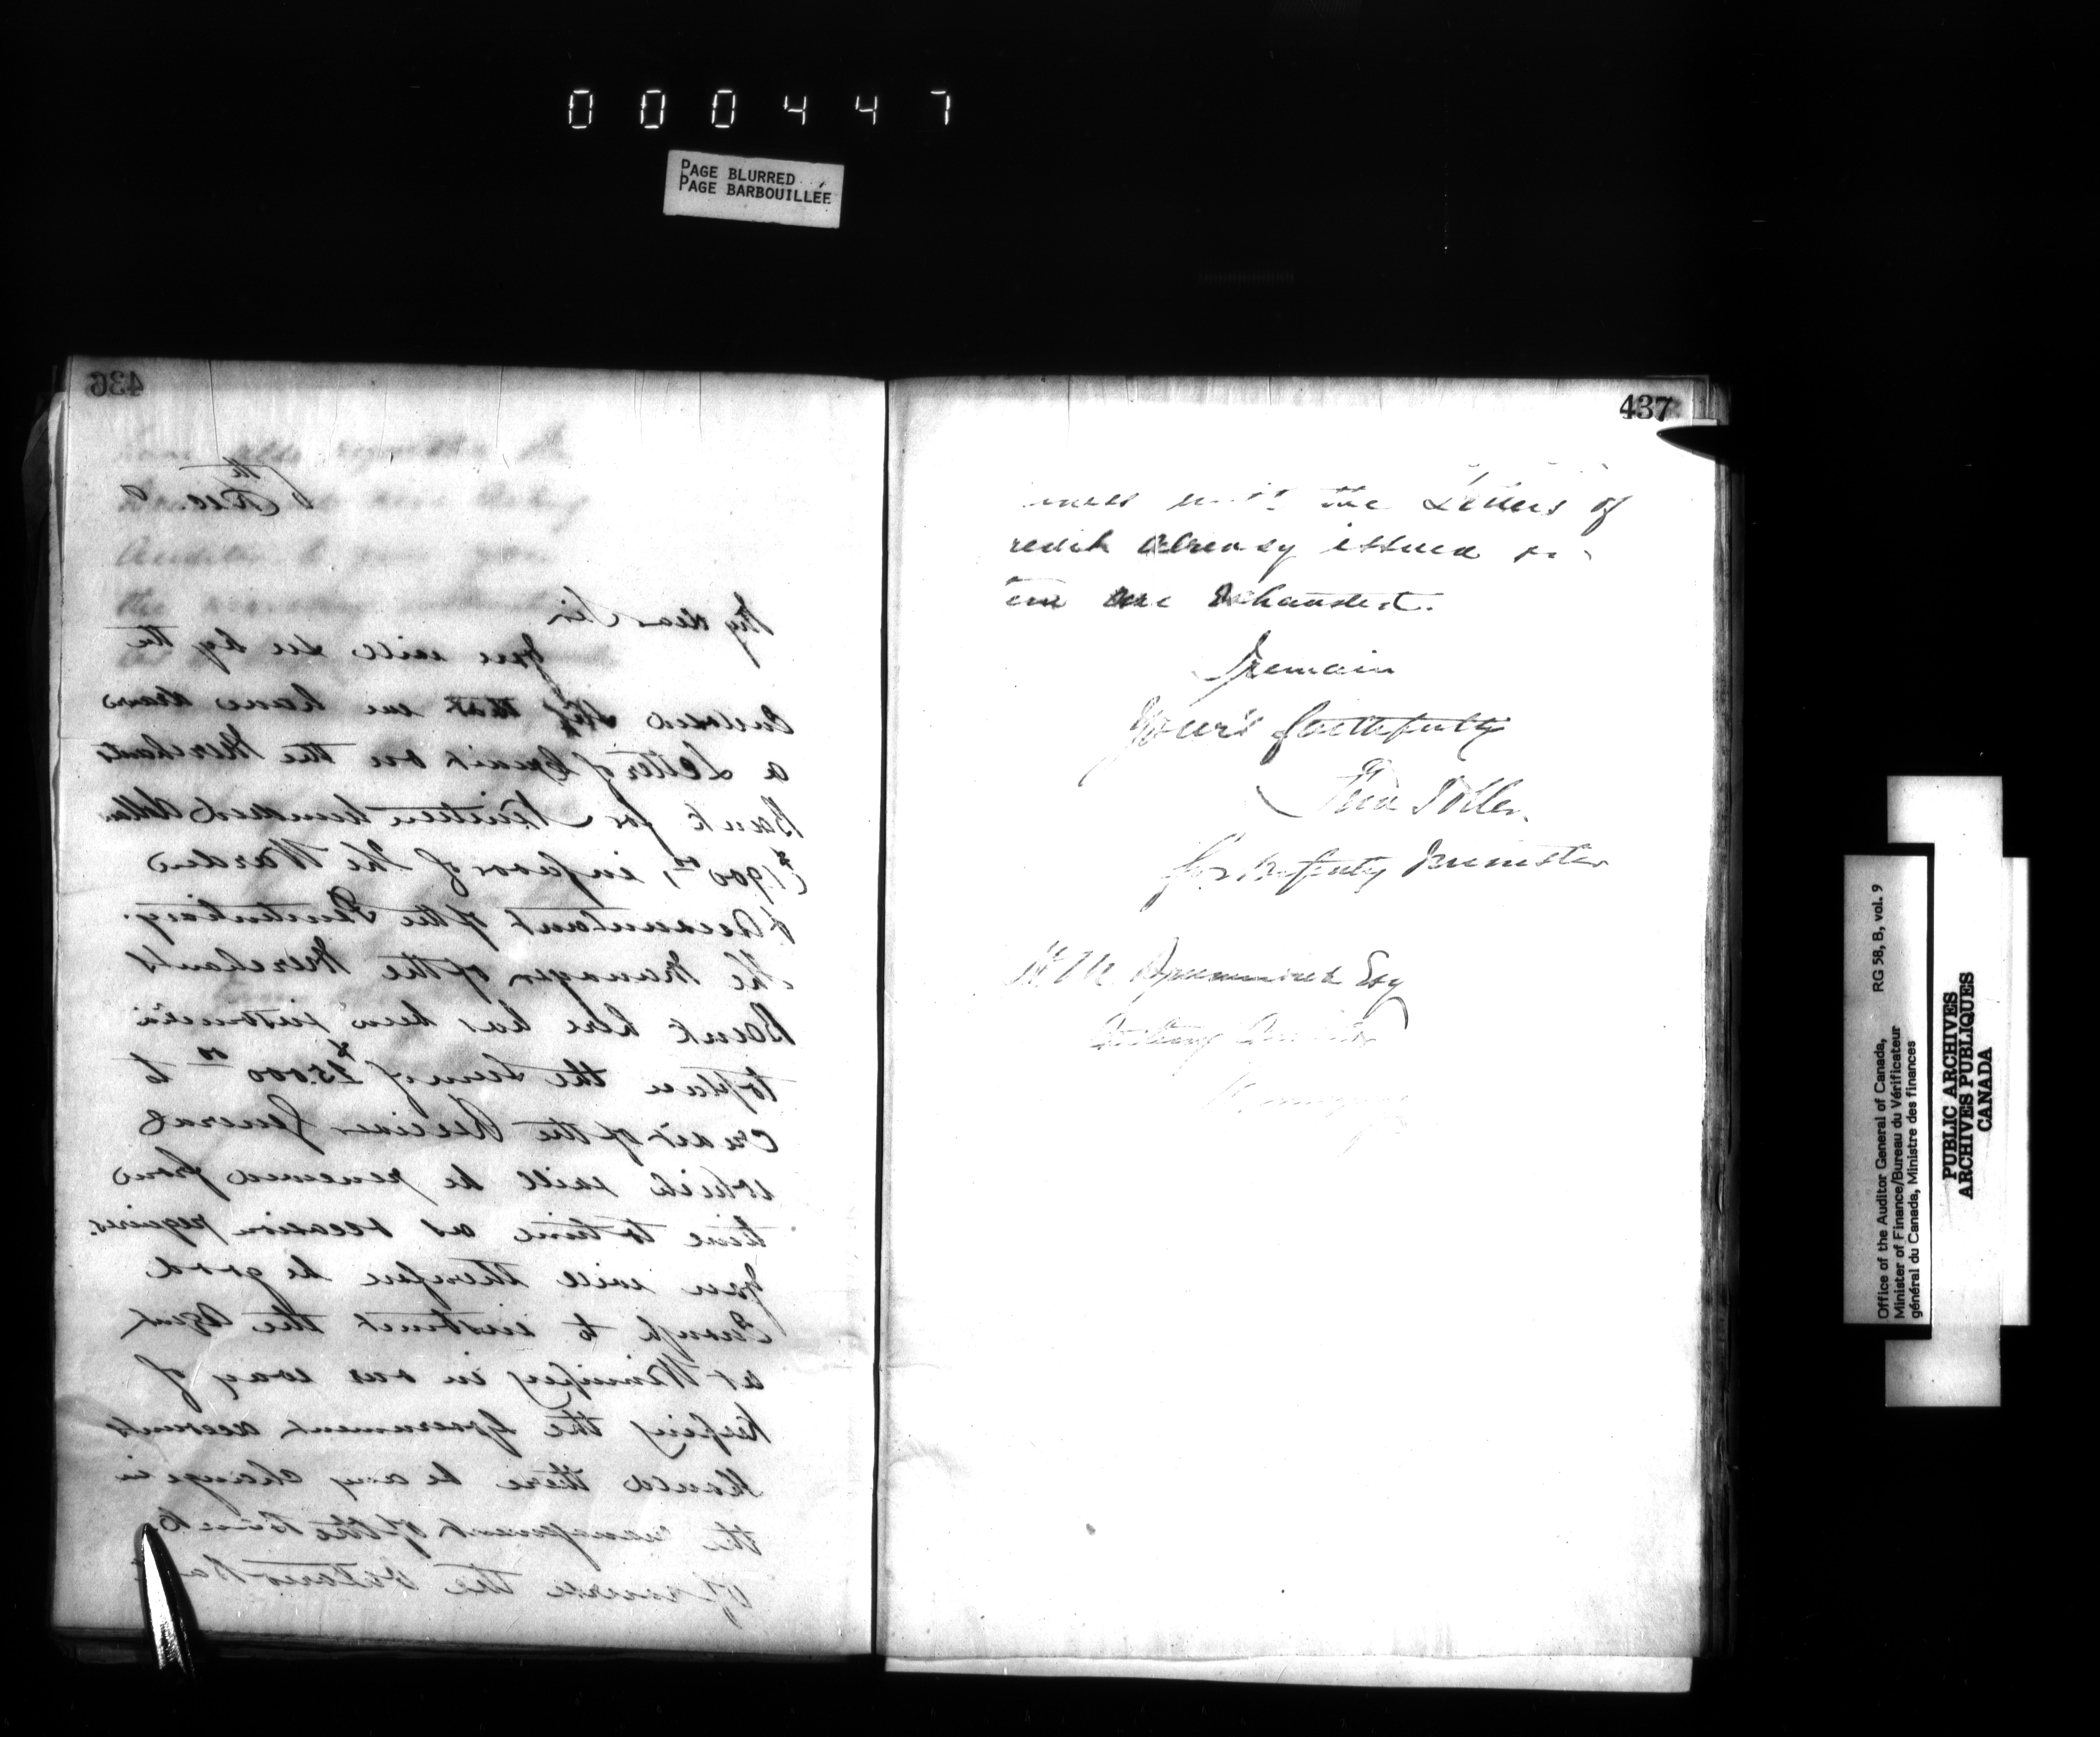 000447
PAGE BLURRED
PAGE BARBOUILLÉE
436
6th Dec.
My dear Sir
You will see by the
Enclosed that we have drawn
a Letter of Credit on the Merchants
Bank for Nineteen hundred dollars
($1900 00, in favor of The Warden
& Accountant of the Penitentiary.
The Manager of the Merchants
Bank here has been instructed
to place the Sum of $25.000 00 to
Credit of the Receiver General
which will be renewed from
time to time as occasion requires.
You will therefore be good
Enough to instruct the Agent
at Winnipeg in our way of
Keeping the Government accounts
should there be any change in
the management of the Bank.
Of course the Ontario Ba
437
the Letters of
redit already issued
are Exhausted.
I remain
Your's faithfully
for Deputy Minister
Drummond Esq
Acting Auditor
Winnipeg
Office of the Auditor General of Canada, RG 58, B, vol. 9
Minister of Finance/Bureau du Vérificateur
général du Canada, Ministre des finances
PUBLIC ARCHIVES
ARCHIVES PUBLIQUES
CANADA